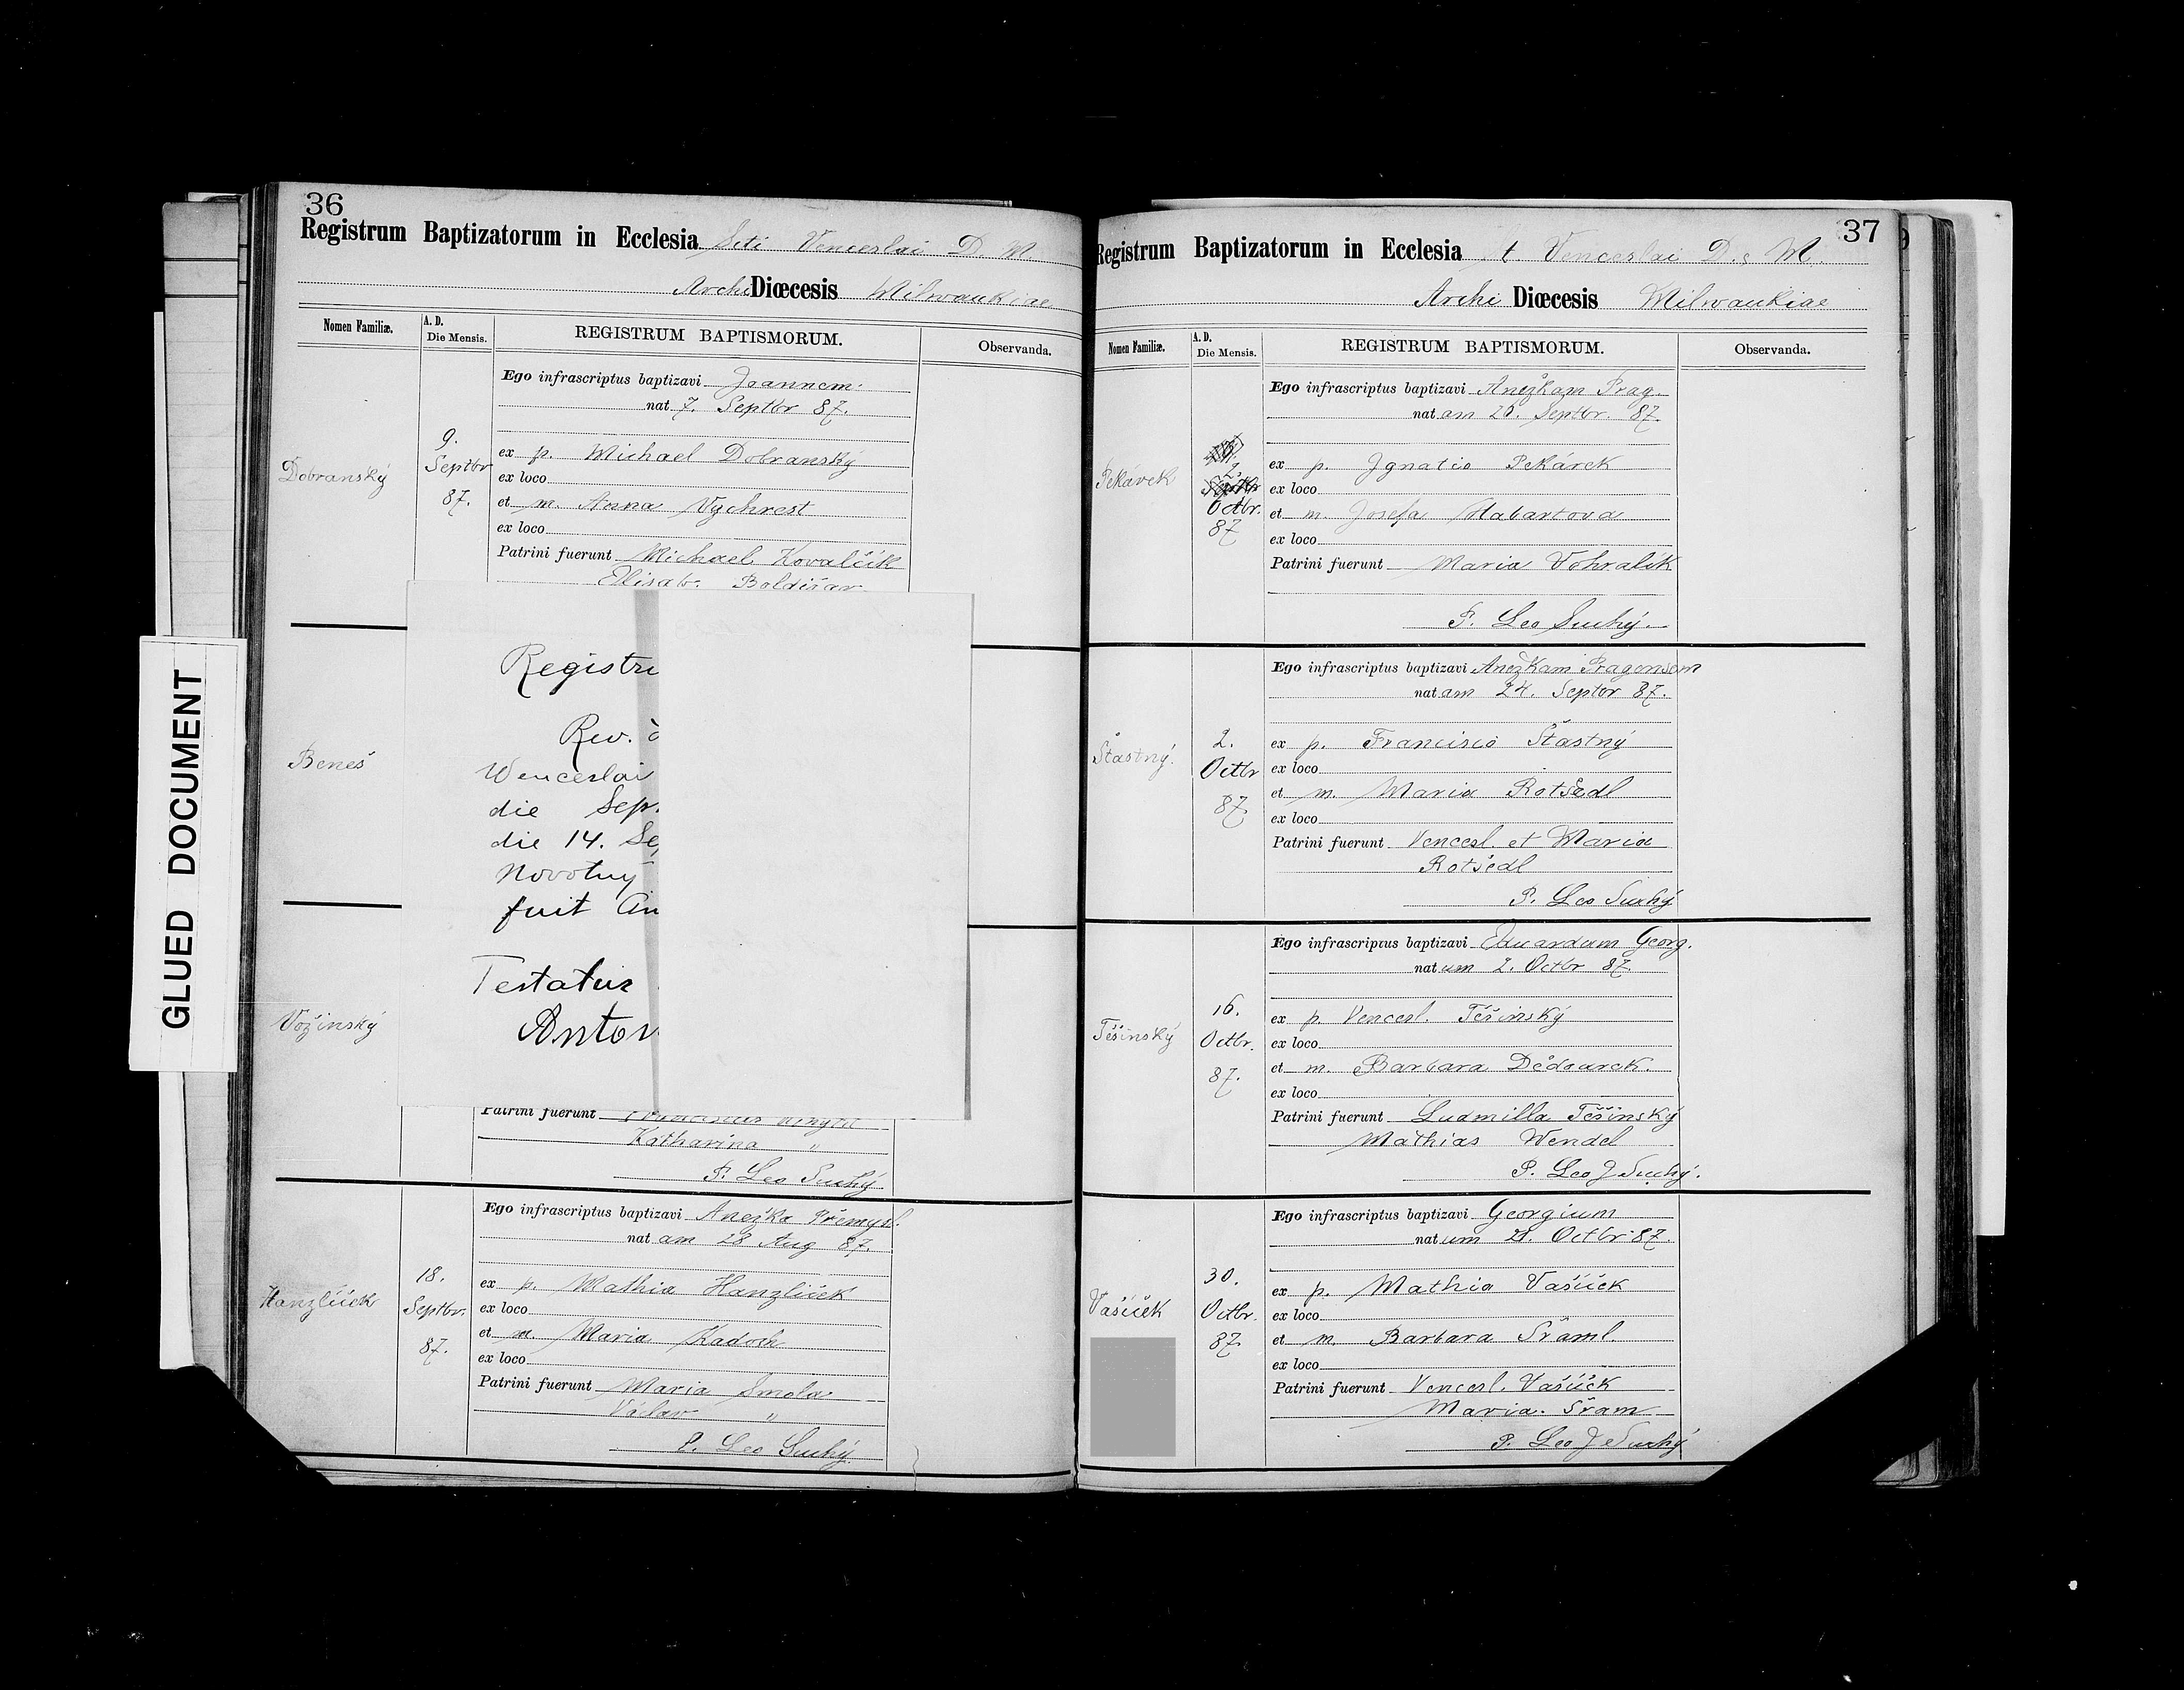 36
Registrum Baptizatorum in Ecclesia Scti Venceslai D. M.
Archi Diœcesis Milwaukiae
Nomen Familiæ.
A. D.
Die Mensis.
REGISTRUM BAPTISMORUM.
Observanda.
Dobranský
9.
Septbr
87.
Ego infrascriptus baptizavi Joannem
nat 7. Septbr 87.
ex p. Michael Dobranský
ex loco
et m. Anna Vychrest
ex loco
Patrini fuerunt Michael Kovalčik
Elisab. Boldišar
Beneš
Vožinský
GLUED DOCUMENT
Registru
Rev.
Wenceslai
die Sep.
die 14. Se
Novotny
fuit An
Testatur
Anton
Patrini fuerunt
Katharina "
P. Leo Suchý
Hanzlíček
18.
Septbr.
87.
Ego infrascriptus baptizavi Anežka Přemysl.
nat am 28 Aug 87.
ex p. Mathia Hanzlíček
ex loco
et m. Maria Kadoch
ex loco
Patrini fuerunt Maria Smola
Václav "
P. Leo Suchý
37
Registrum Baptizatorum in Ecclesia St Venceslai D. & M.
Archi Diœcesis Milwaukiae
Nomen Familiæ.
A. D.
Die Mensis.
REGISTRUM BAPTISMORUM.
Observanda.
Pekárek
2.
Octbr.
87
Ego infrascriptus baptizavi Anežkam Prag.
nat am 20. Septbr. 87.
ex p. Ignatio Pekárek
ex loco
et m. Josefa Habartova
ex loco
Patrini fuerunt Maria Vohralík
P. Leo Suchý.
Šťastný.
2.
Octbr
87.
Ego infrascriptus baptizavi Anežkam Pragensem
nat am 24. Septbr 87.
ex p. Francisco Šťastný
ex loco
et m. Maria Rotšedl
ex loco
Patrini fuerunt Vencesl. et Maria
Rotšedl
P. Leo Suchý
Těšinský
16.
Octbr.
87.
Ego infrascriptus baptizavi Eduardum Georg.
nat um 2. Octbr 87.
ex p. Vencesl. Těšinský
ex loco
et m. Barbara Dědourek.
ex loco
Patrini fuerunt Ludmilla Těšinský
Mathias Wendel
P. Leo J Suchý.
Vašíček
30.
Octbr.
87
Ego infrascriptus baptizavi Georgium
nat um 21. Octbr 87.
ex p. Mathia Vašíček
ex loco
et m. Barbara Šraml.
ex loco
Patrini fuerunt Vencesl. Vašíček
Maria Šram
P. Leo J Suchý